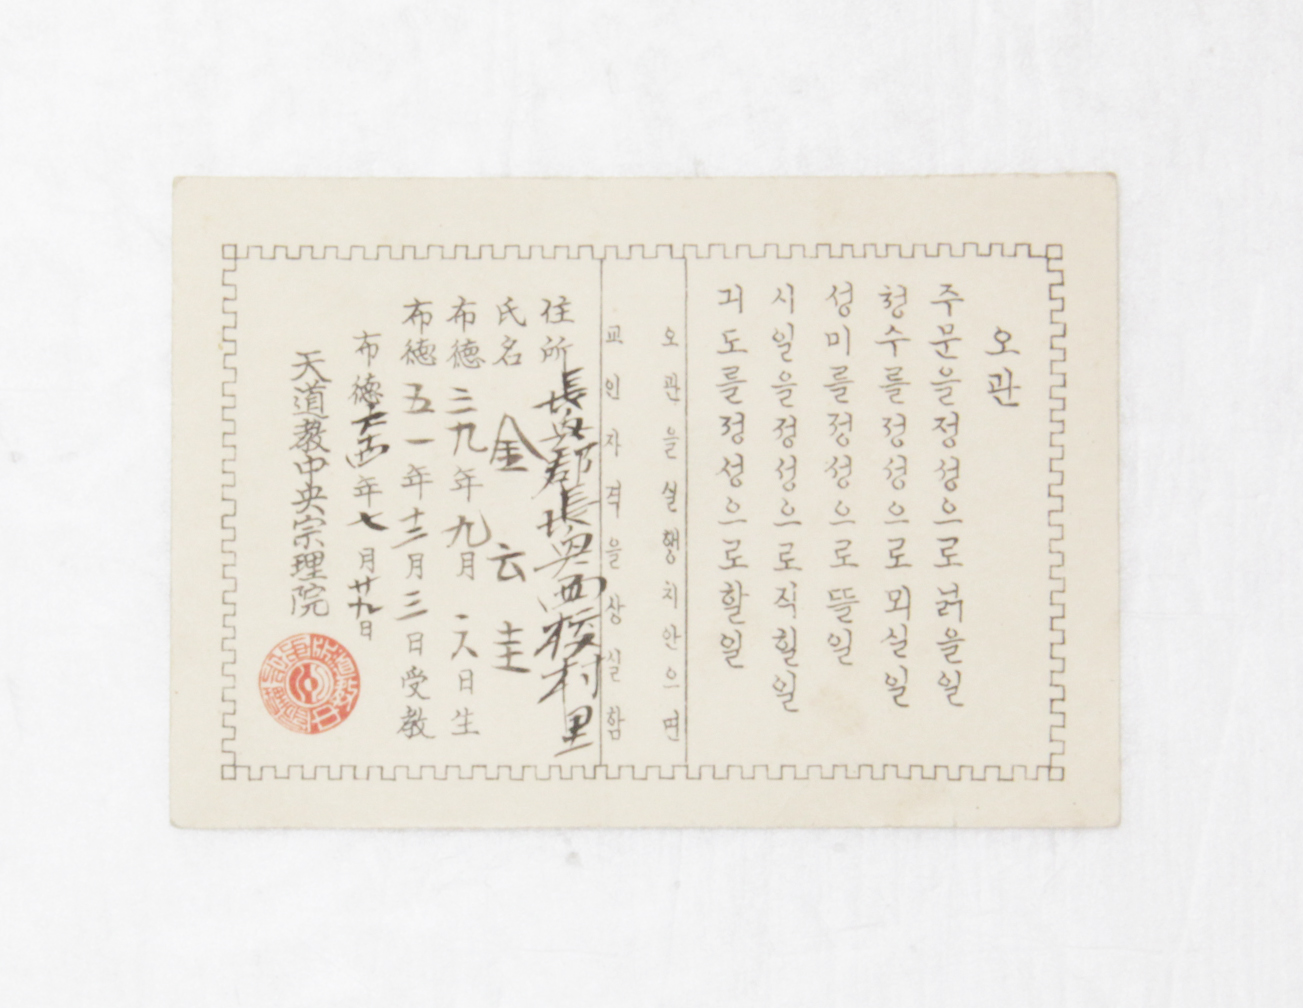 오관
주문을정성으로넑을일
청수를정성으로뫼실일
성미를정성으로뜰일
시일을정성으로직힐일
긔도를정성으로할일
오관을실행치안으면
교인자격을상실함
住所 長興郡長興面校村里
氏名 金云圭
布德三九年九月六日生
布德五一年十二月三日受教
布德 年七月廿九日
天道教中央宗理院